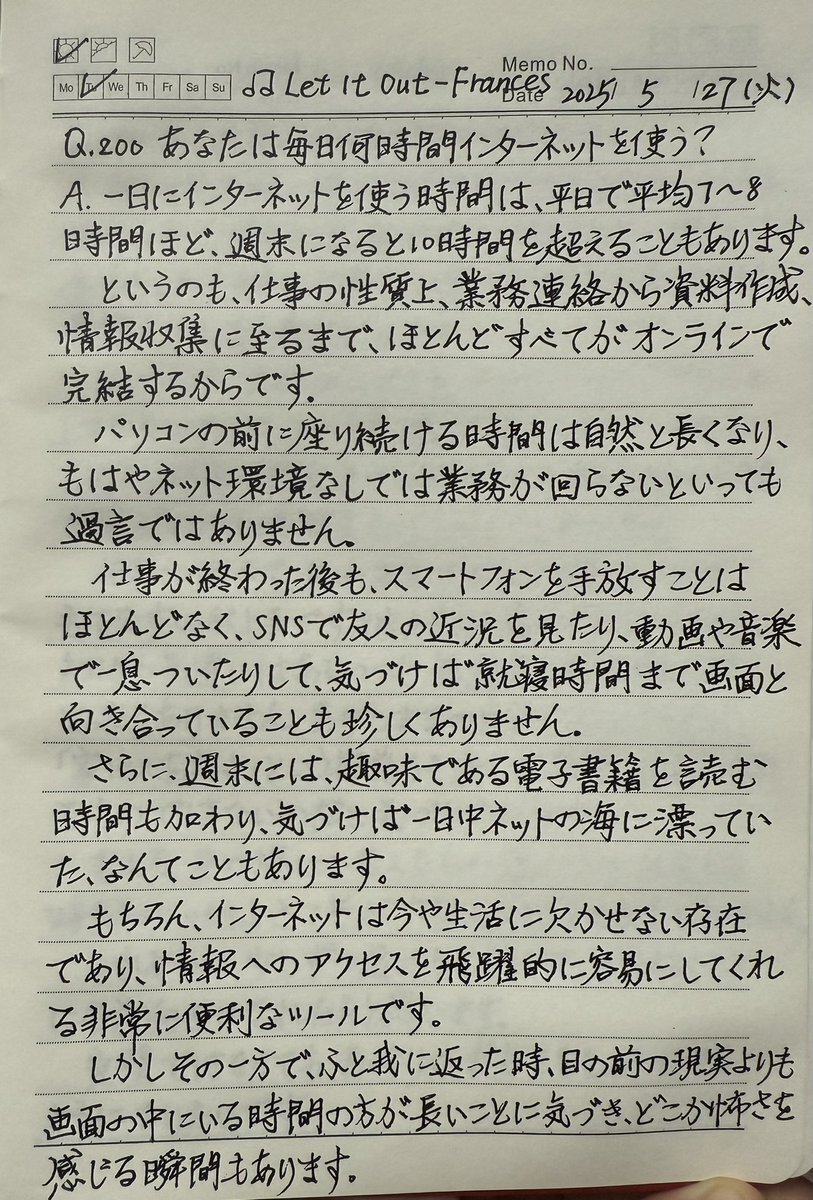 Memo No.
Mo Tu We Th Fr Sa Su ♫ Let It Out-Frances Date 2025 5 27(火)
Q.200 あなたは毎日何時間インターネットを使う?
A. 一日にインターネットを使う時間は、平日で平均7〜8
時間ほど、週末になると10時間を超えることもあります。
というのも、仕事の性質上、業務連絡から資料作成、
情報収集に至るまで、ほとんどすべてがオンラインで
完結するからです。
パソコンの前に座り続ける時間は自然と長くなり、
もはやネット環境なしでは業務が回らないといっても
過言ではありません。
仕事が終わった後も、スマートフォンを手放すことは
ほとんどなく、SNSで友人の近況を見たり、動画や音楽
で一息ついたりして、気づけば就寝時間まで画面と
向き合っていることも珍しくありません。
さらに、週末には、趣味である電子書籍を読む
時間も加わり、気づけば一日中ネットの海に漂ってい
た、なんてこともあります。
もちろん、インターネットは今や生活に欠かせない存在
であり、情報へのアクセスを飛躍的に容易にしてくれ
る非常に便利なツールです。
しかしその一方で、ふと我に返った時、目の前の現実よりも
画面の中にいる時間の方が長いことに気づき、どこか怖さを
感じる瞬間もあります。